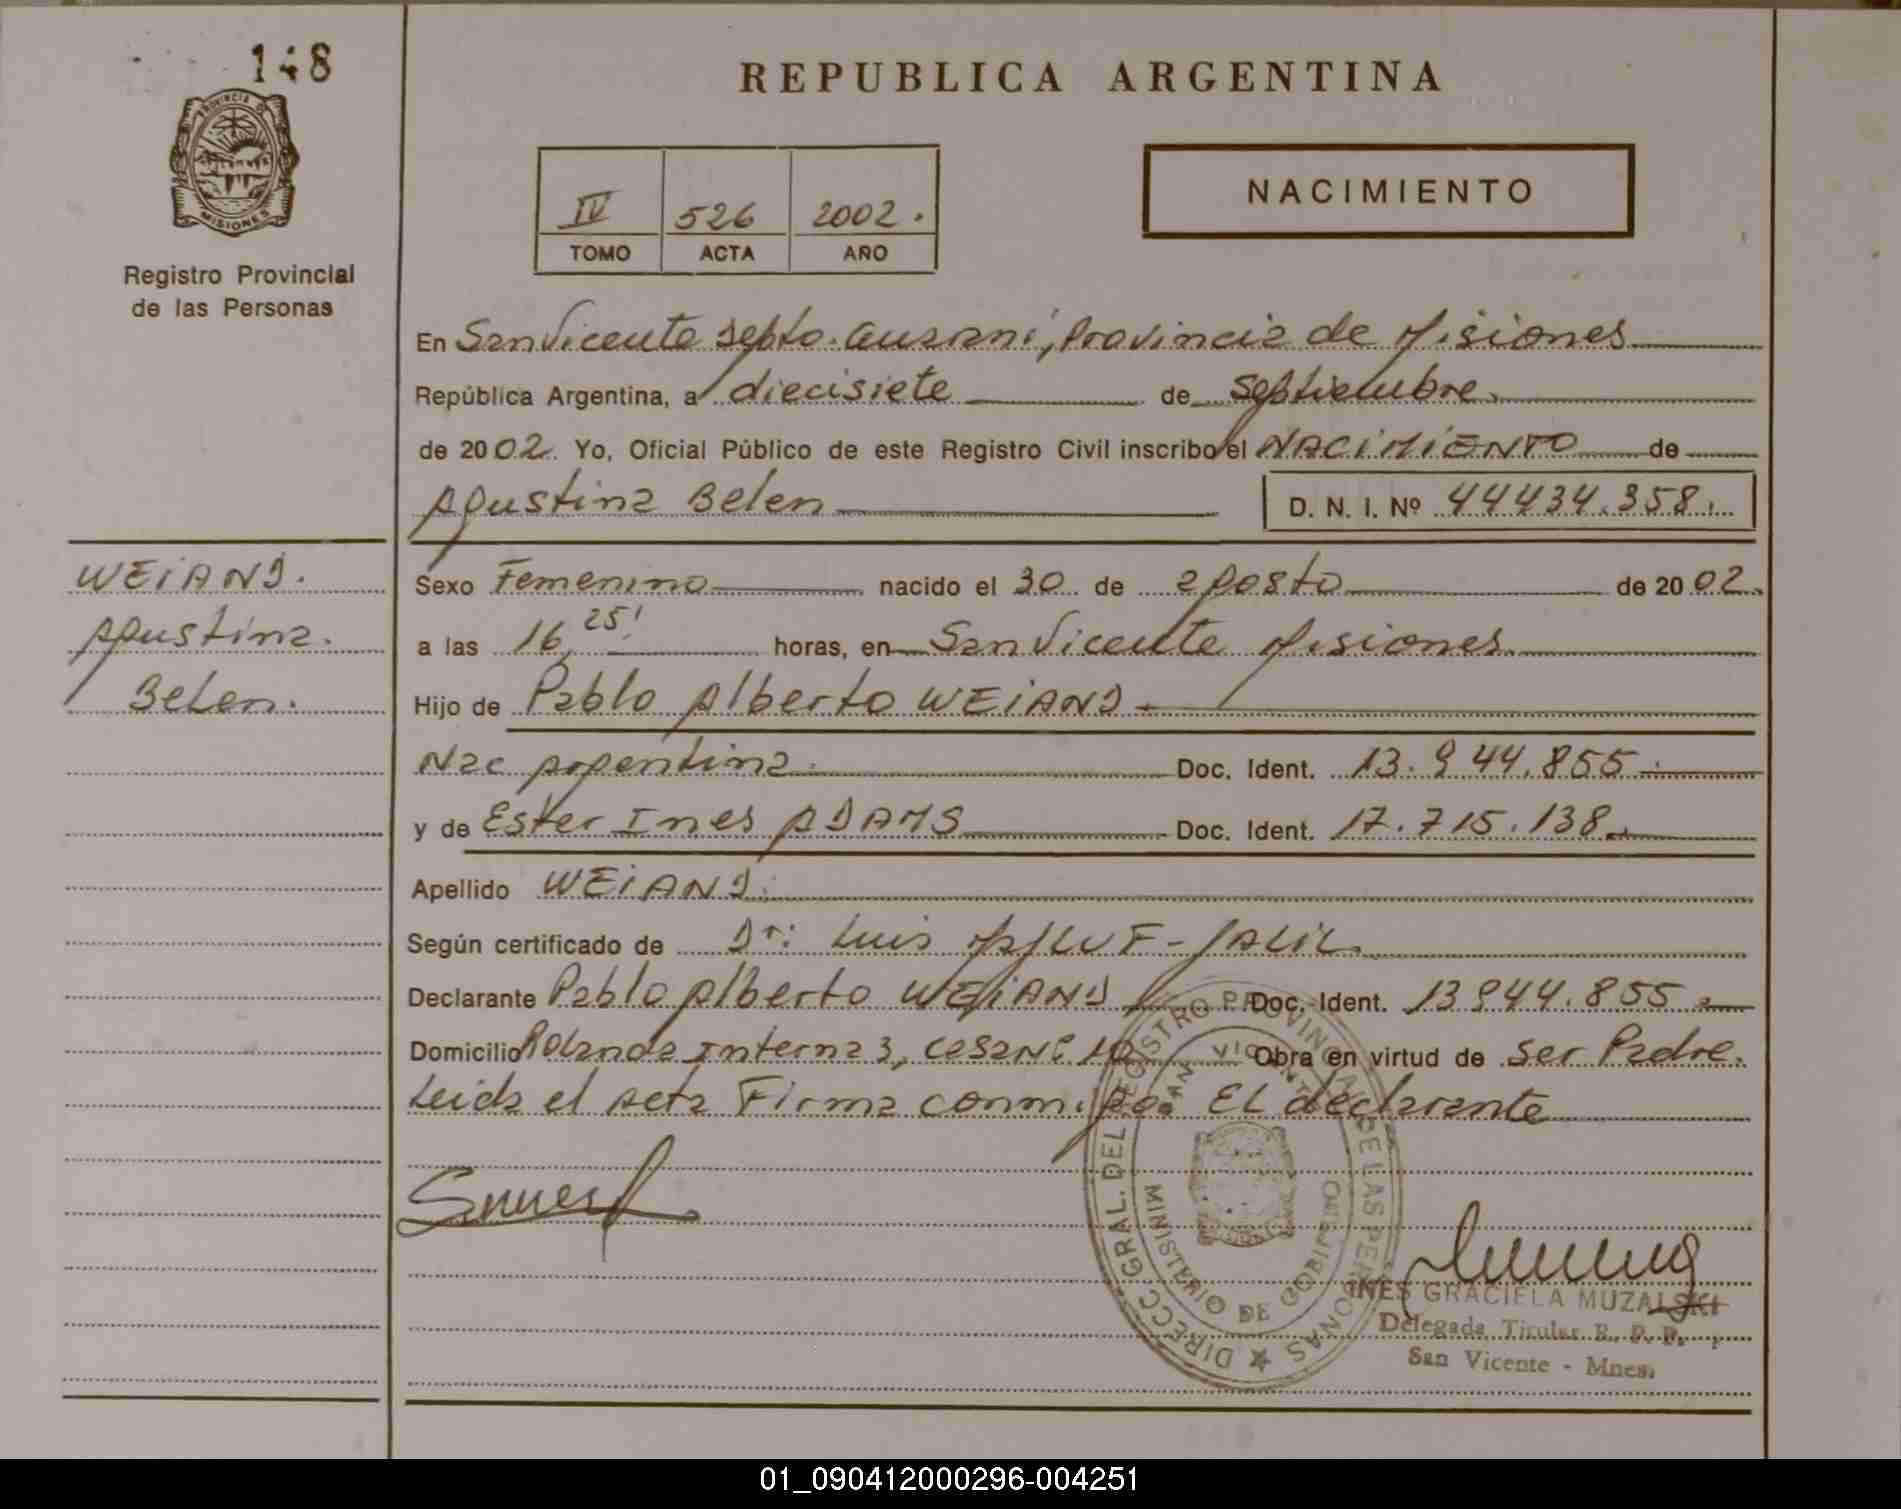 148
PROVINCIA DE
MISIONES
Registro Provincial
de las Personas
REPUBLICA ARGENTINA
IV 526 2002.
TOMO ACTA AÑO
NACIMIENTO
En San Vicente Depto. Guaraní, Provincia de Misiones
República Argentina, a diecisiete de Septiembre
de 2002. Yo, Oficial Público de este Registro Civil inscribo el NACIMIENTO de
Agustina Belen D. N. I. Nº 44434.358.
WEIAND.
Agustina.
Belen.
Sexo Femenino nacido el 30 de agosto de 2002.
a las 16,25' horas, en San Vicente Misiones
Hijo de Pablo Alberto WEIAND
Nac Argentina. Doc. Ident. 13.944.855
y de Ester Ines ADAMS Doc. Ident. 17.715.138
Apellido WEIAND.
Según certificado de Dr: Luis JALIL
Declarante Pablo Alberto WEIAND Doc. Ident. 13944.855
Domicilio Interna 3, casa Nº 10 Obra en virtud de ser Padre.
Leida el acta Firma conmigo. EL declarante
DIRECC. GRAL. DEL REGISTRO PROVINCIAL DE LAS PERSONAS
SAN VICENTE
MINISTERIO DE GOBIERNO
INES GRACIELA MUZALSKI
Delegada Titular R. P. P.
San Vicente - Mnes.
01_090412000296-004251